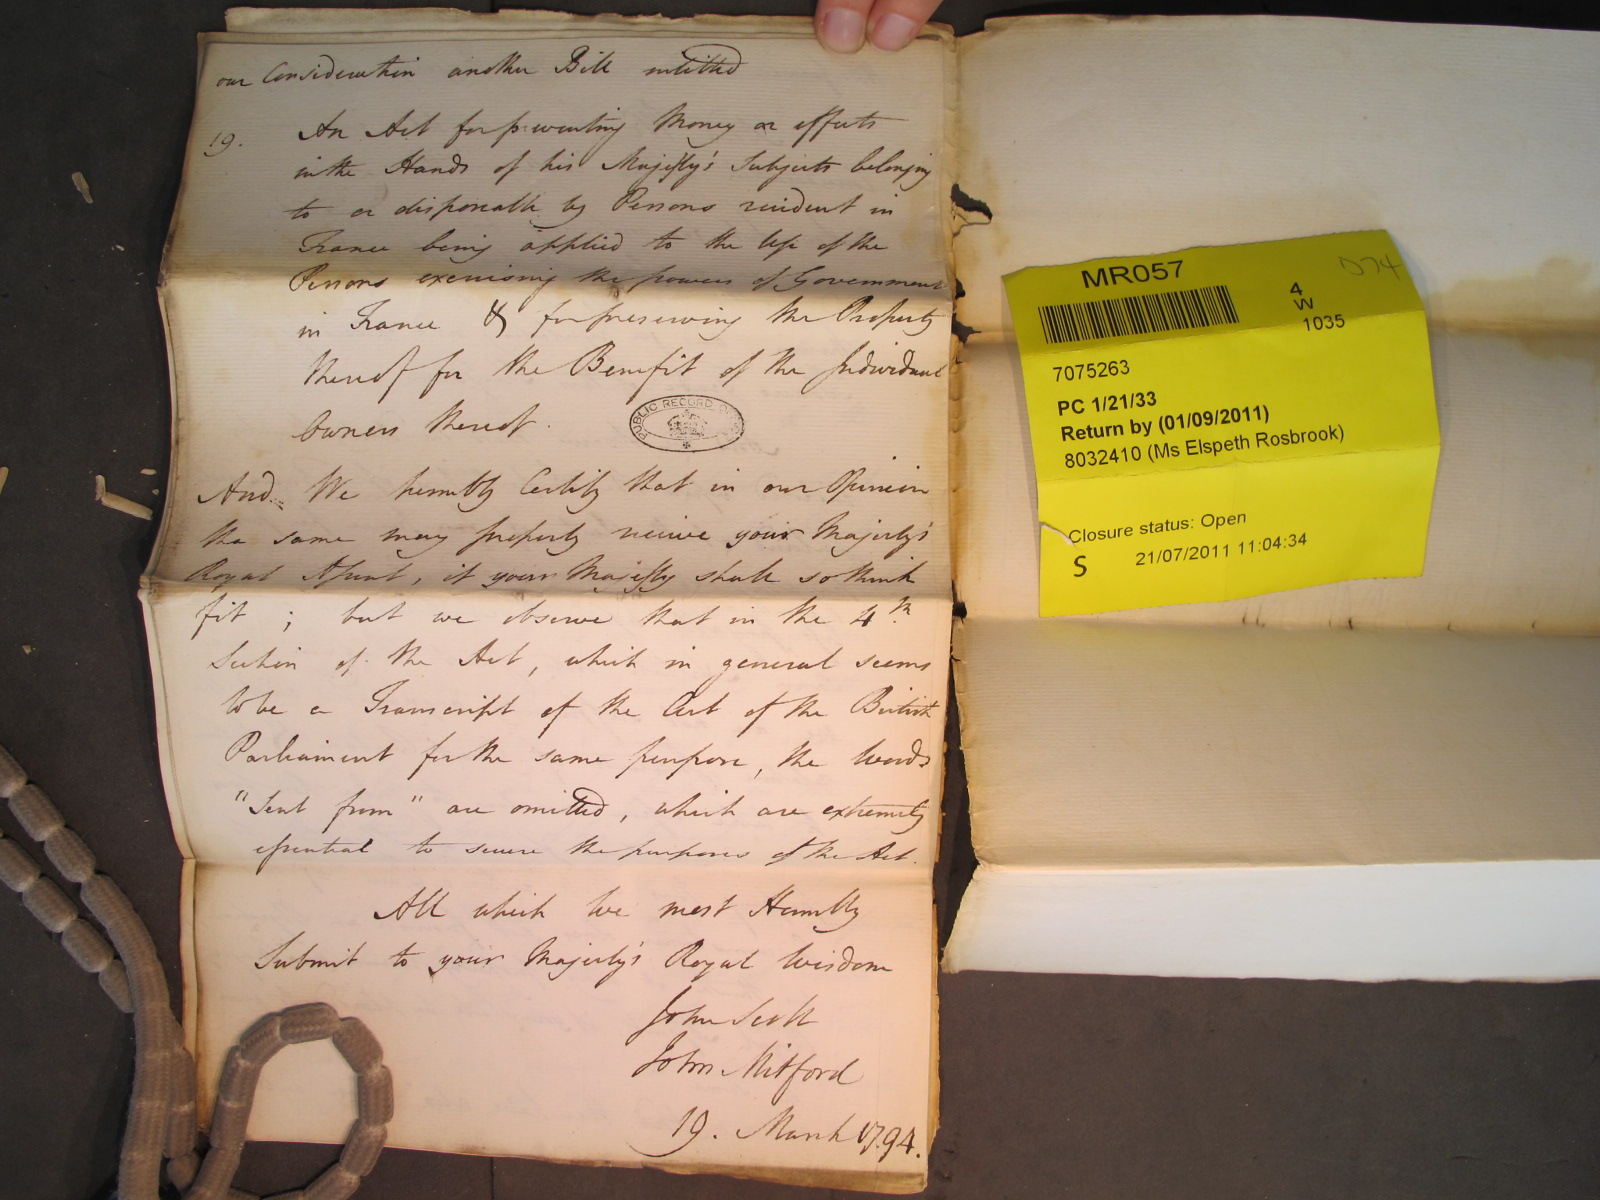 our Consideration another Bill entitled
19. An Act for preventing Money or effects
in the Hands of his Majesty's Subjects belonging
to or disposable by Persons resident in
France being applied to the Use of the
Persons exercising the powers of Government
in France & for preserving the Property
thereof for the Benefit of the Individual
Owners thereof.
PUBLIC RECORD
And We humbly Certify that in our Opinion
the same may properly receive your Majesty's
Royal Assent, if your Majesty shall so think
fit; but we observe that in the 4th.
Section of the Act, which in general seems
to be a Transcript of the Act of the British
Parliament for the same purpose, the Words
"Sent from" are omitted, which are extremely
essential to secure the purposes of the Act.
All which We most Humbly
Submit to your Majesty's Royal Wisdom
John Scott
John Mitford
19. March 1794.
MR057
D74
4
W
1035
7075263
PC 1/21/33
Return by (01/09/2011)
8032410 (Ms Elspeth Rosbrook)
Closure status: Open
S 21/07/2011 11:04:34